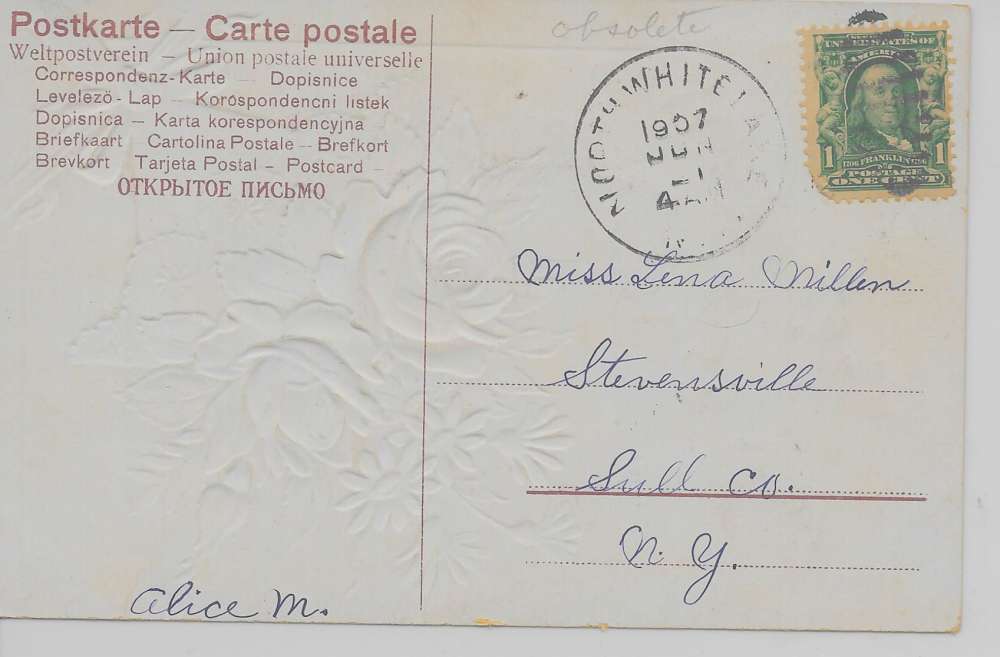 Postkarte — Carte postale
Weltpostverein — Union postale universelle
Correspondenz-Karte — Dopisnice
Levelező-Lap — Korospondencni listek
Dopisnica — Karta korespondencyjna
Briefkaart Cartolina Postale — Brefkort
Brevkort Tarjeta Postal — Postcard —
ОТКРЫТОЕ ПИСЬМО
obsolete
WHITE
1907
UNITED STATES OF
AMERICA
1 1
1706 FRANKLIN 1790
POSTAGE
ONE CENT
Miss Lena Millen
Stevensville
Sull Co.
N. Y.
Alice M.